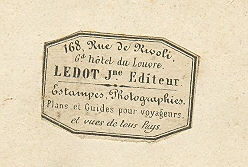 168, Rue de Rivoli,
Gd hôtel du Louvre.
LEDOT Jne Editeur
Estampes, Photographies.
Plans et Guides pour voyageurs.
et vues de tous Pays